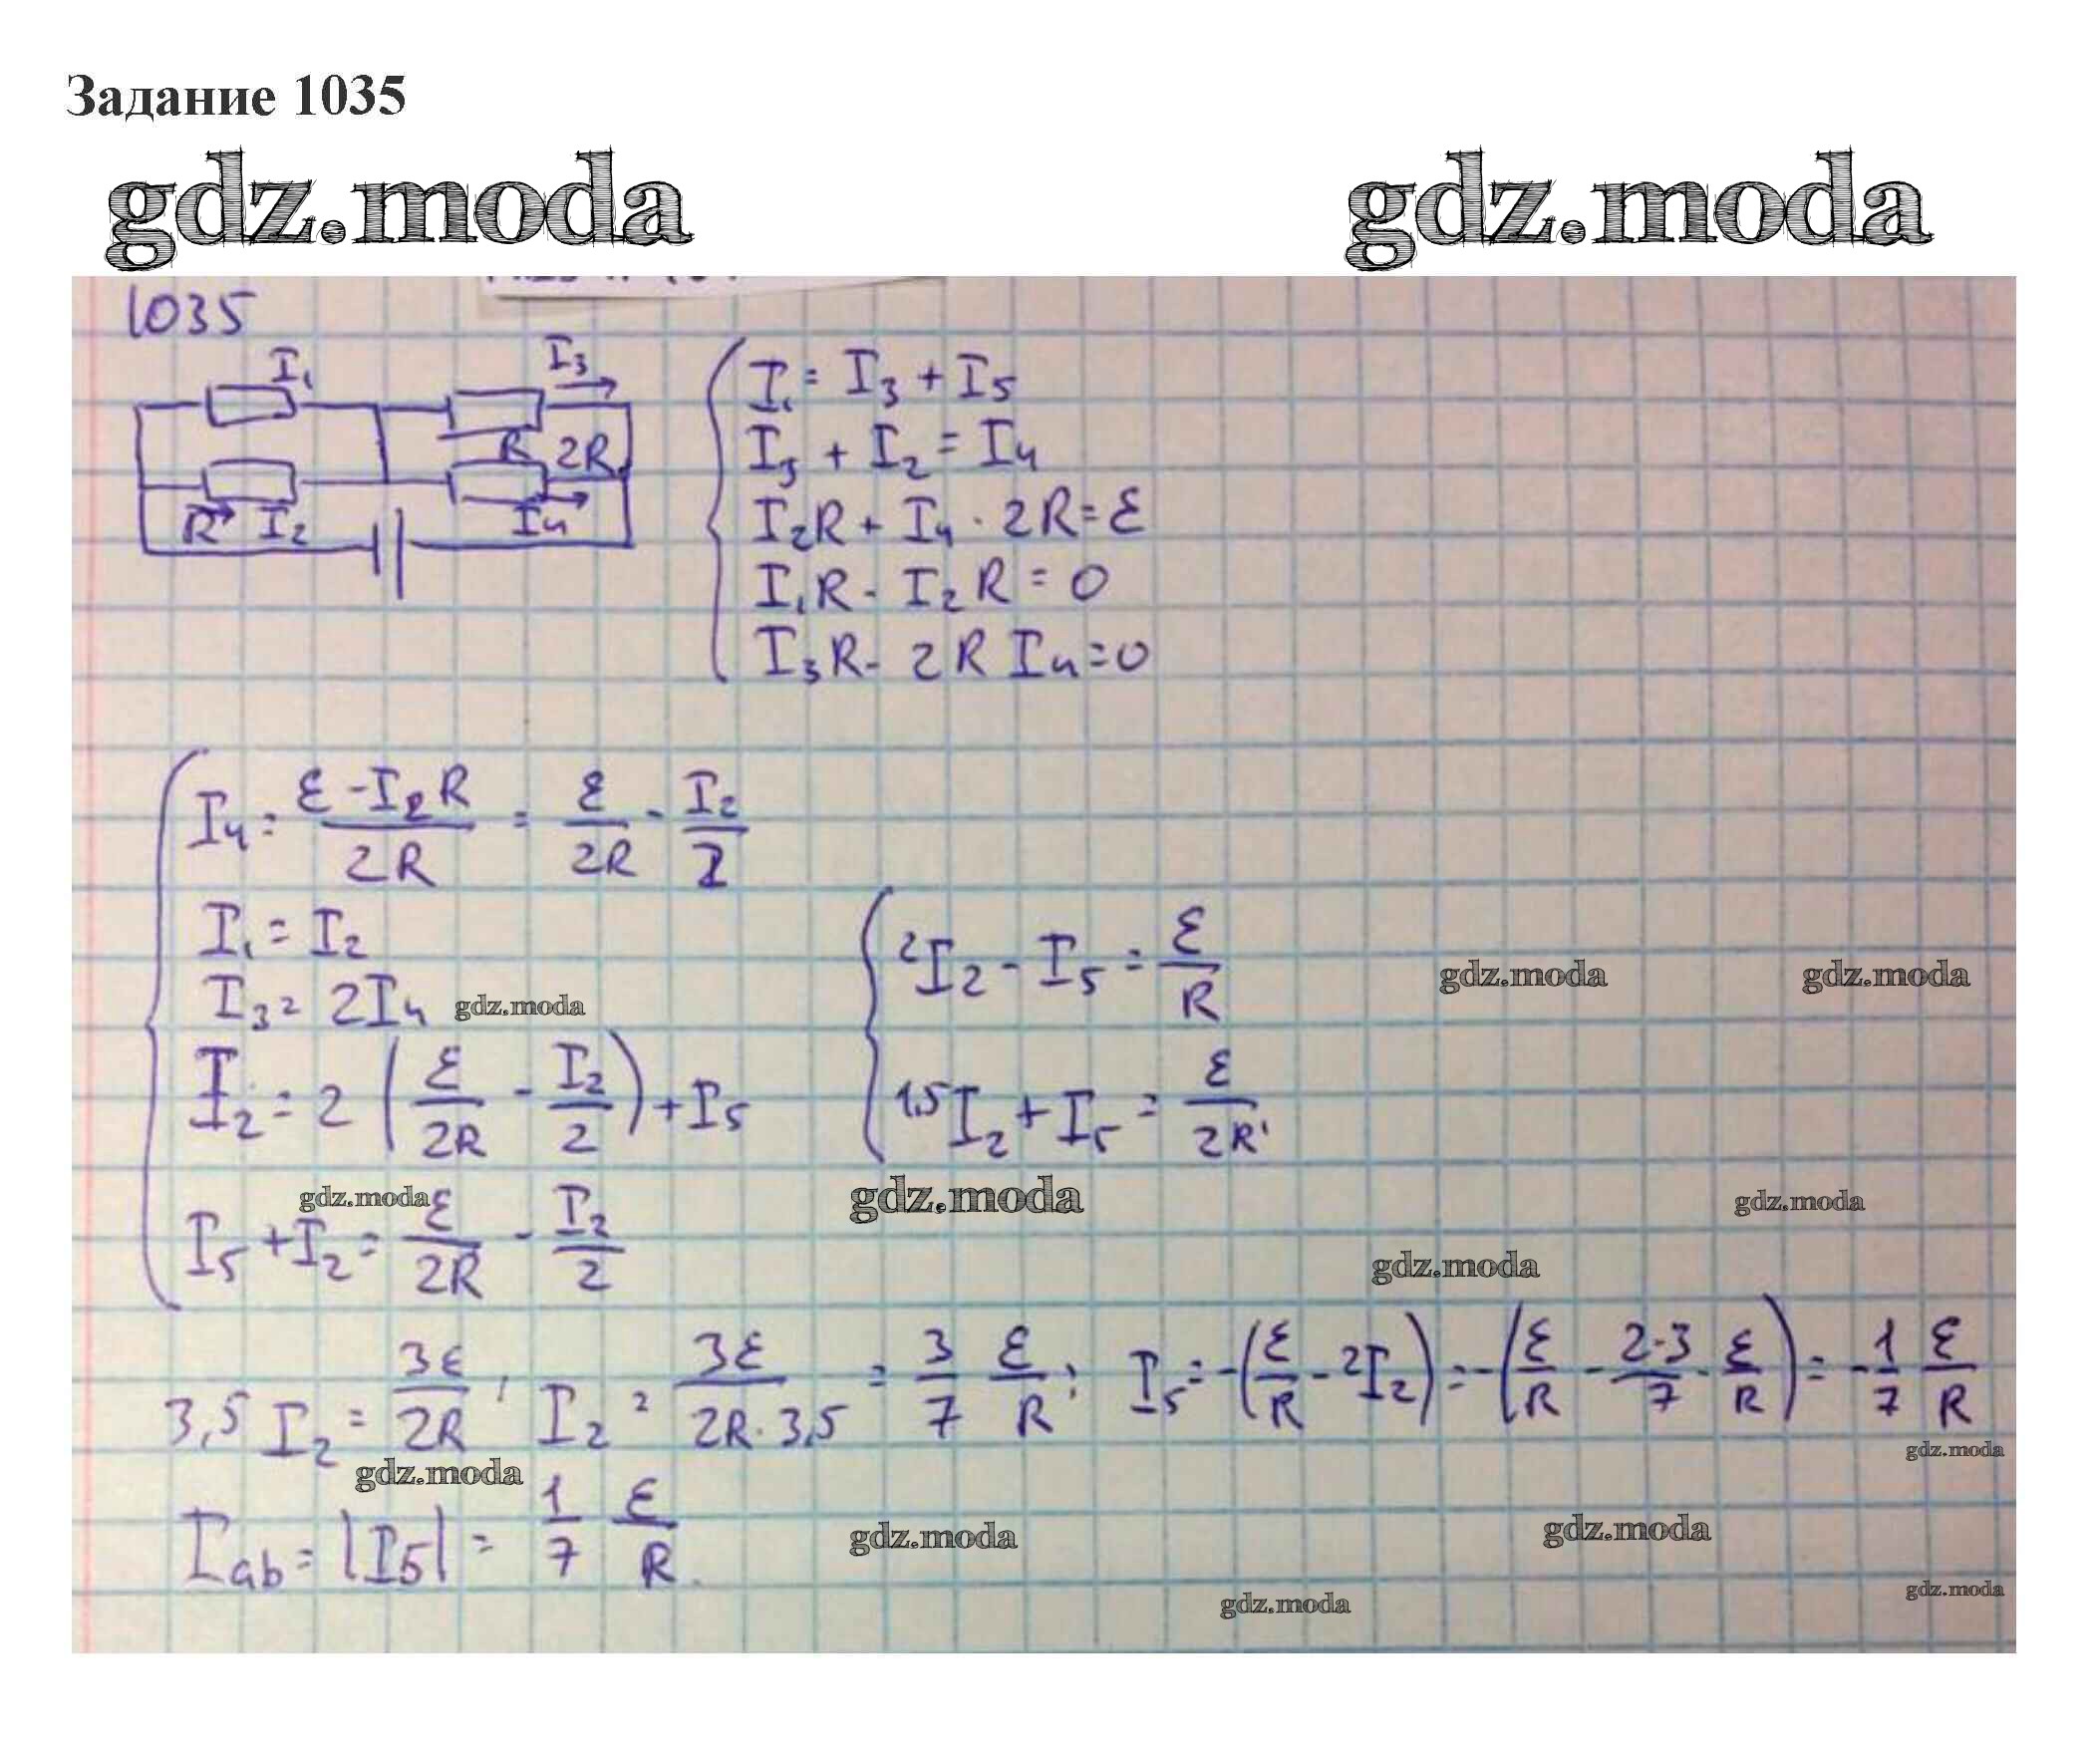 Задание 1035
gdz.moda gdz.moda
1035
I₁ I₃
R 2R
R I₂ I₄
I₁ = I₃ + I₅
I₃ + I₂ = I₄
I₂R + I₄ · 2R = ε
I₁R - I₂R = 0
I₃R - 2R I₄ = 0
I₄ = (ε - I₂R)/2R = ε/2R - I₂/2
I₁ = I₂
I₃ = 2I₄ gdz.moda
I₂ = 2(ε/2R - I₂/2) + I₅
gdz.moda
I₅ + I₂ = ε/2R - I₂/2
2I₂ - I₅ = ε/R
gdz.moda gdz.moda
1,5I₂ + I₅ = ε/2R;
gdz.moda gdz.moda
gdz.moda
3,5 I₂ = 3ε/2R ; I₂ = 3ε/(2R · 3,5) = 3/7 ε/R ; I₅ = -(ε/R - 2I₂) = -(ε/R - 2·3/7 · ε/R) = -1/7 ε/R
gdz.moda gdz.moda
I ab = |I₅| = 1/7 ε/R.
gdz.moda gdz.moda
gdz.moda gdz.moda